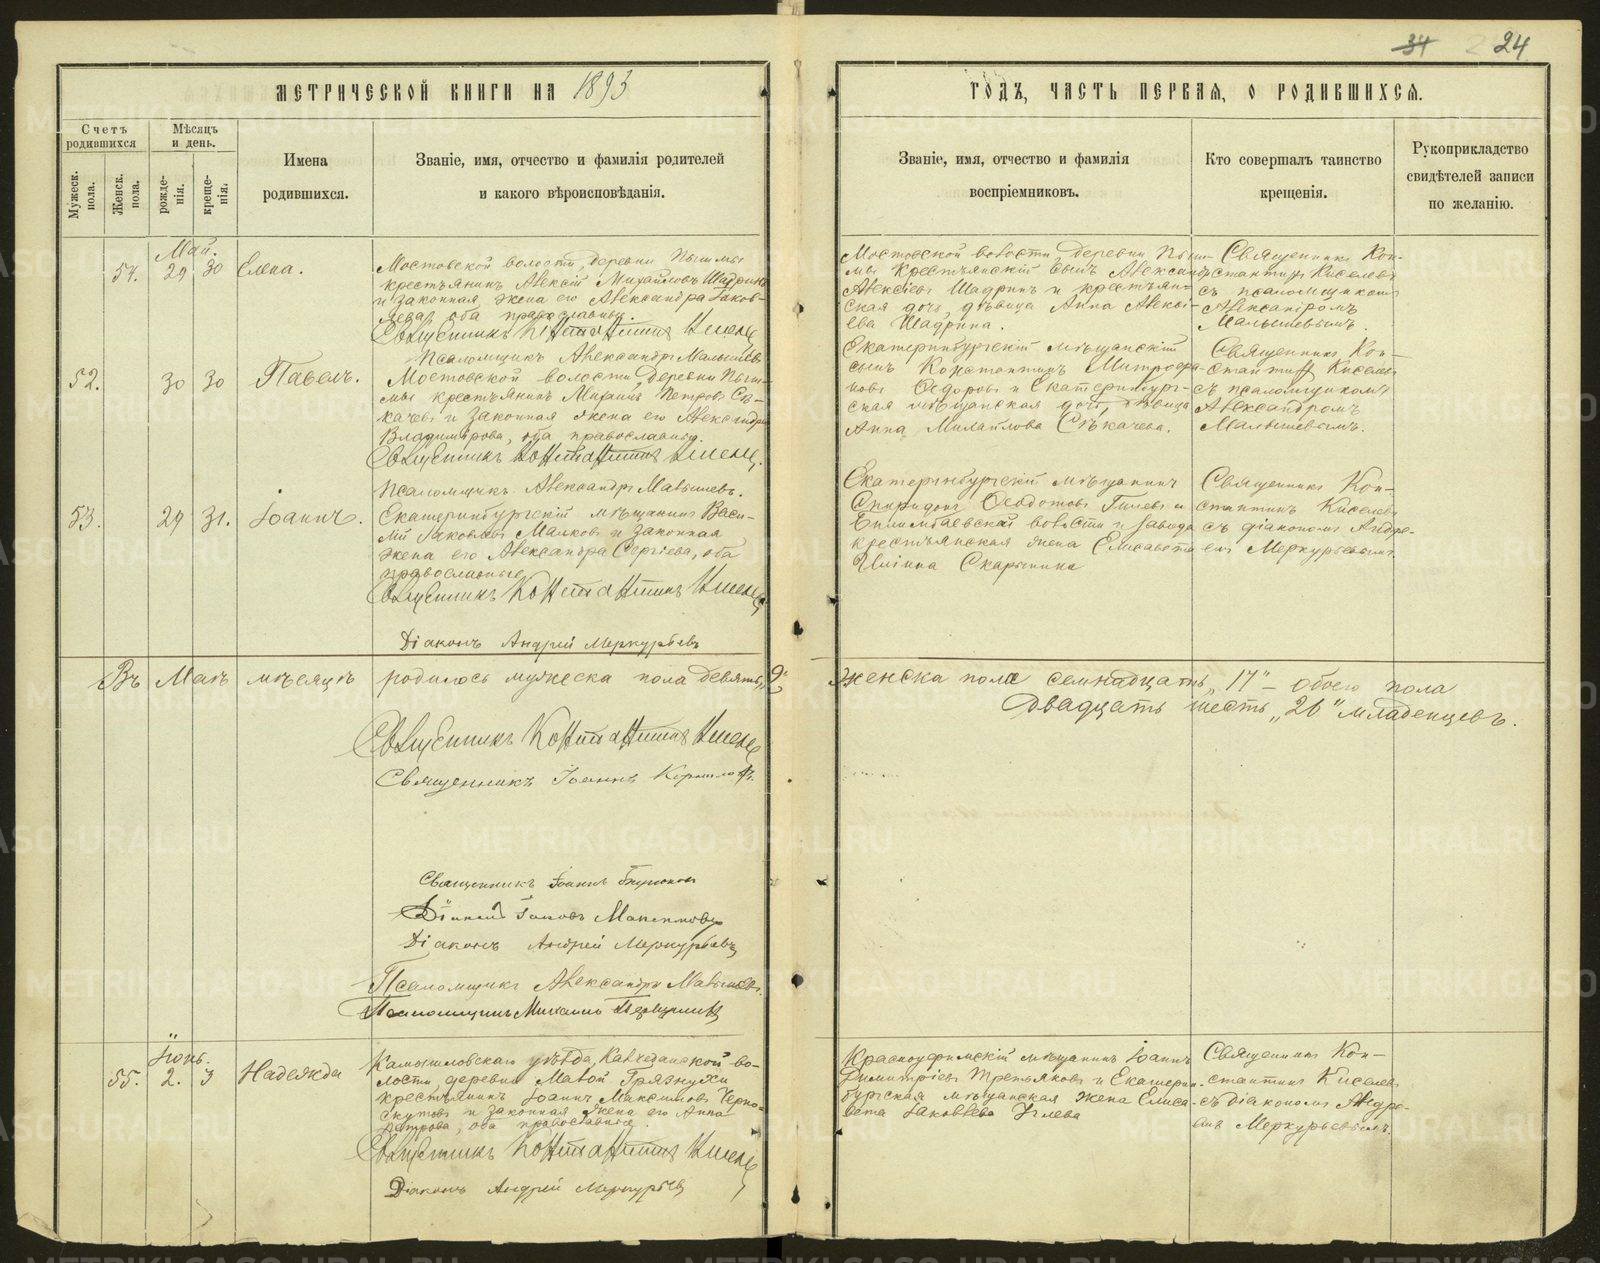 34 24
МЕТРИЧЕСКОЙ КНИГИ НА 1893
ГОДЪ, ЧАСТЬ ПЕРВАЯ, О РОДИВШИХСЯ.
Счетъ родившихся
Мужеск. пола.
Женск. пола.
Мѣсяцъ и день.
рожде-нія.
креще-нія.
Имена
родившихся.
Званіе, имя, отчество и фамилія родителей
и какого вѣроисповѣданія.
Званіе, имя, отчество и фамилія
воспріемниковъ.
Кто совершалъ таинство
крещенія.
Рукоприкладство
свидѣтелей записи
по желанію.
Май.
54. 29 30 Елена.
Мостовской волости, деревни Пышмы
крестьянинъ Алексій Михайловъ Шадринъ
и законная жена его Александра Іаков-
лева, оба православные.
Священникъ Константинъ Киселевъ
Псаломщикъ Александръ Малышевъ
Мостовской волости, деревни Пыш-
мы крестьянскій сынъ Александръ
Алексіевъ Шадринъ и крестьян-
ская дочь, дѣвица Анна Алексі-
ева Шадрина.
Священникъ Кон-
стантинъ Киселевъ
съ псаломщикомъ
Александромъ
Малышевымъ.
52. 30 30 Павелъ.
Мостовской волости, деревни Пыш-
мы крестьянинъ Михаилъ Петровъ Сѣ-
качевъ и законная жена его Александра
Владимірова, оба православные.
Священникъ Константинъ Киселевъ.
Псаломщикъ Александръ Малышевъ.
Екатеринбургскій мѣщанскій
сынъ Константинъ Митрофа-
новъ Ѳедоровъ и Екатеринбург-
ская мѣщанская дочь, дѣвица
Анна Михайлова Сѣкачева.
Священникъ Кон-
стантинъ Киселевъ
съ псаломщикомъ
Александромъ
Малышевымъ.
53. 29 31. Іоаннъ.
Екатеринбургскій мѣщанинъ Васи-
лій Іаковлевъ Малковъ и законная
жена его Александра Сергіева, оба
православные
Священникъ Константинъ Киселевъ
Діаконъ Андрей Меркурьевъ
Екатеринбургскій мѣщанинъ
Спиридонъ Ѳеодотовъ Гилевъ и
Билимбаевской волости и завода
крестьянская жена Елисавета
Иліина Скарынина
Священникъ Кон-
стантинъ Киселевъ
съ діакономъ Андре-
емъ Меркурьевымъ.
Въ Маѣ мѣсяцѣ родилось мужеска пола девять „9"
женска пола семнадцать „17" – обоего пола
двадцать шесть „26" младенцевъ.
Священникъ Константинъ Киселевъ
Священникъ Іоаннъ Корниловъ.
Священникъ Іоаннъ
Діаконъ Іаковъ Максимовъ
Діаконъ Андрей Меркурьевъ
Псаломщикъ Александръ Малышевъ.
Псаломщикъ Михаилъ
Іюнь.
55. 2. 3 Надежда
Камышловскаго уѣзда, Катхеданской во-
лости, деревни Малой Грязнухи
крестьянинъ Іоаннъ Максимовъ Черно-
скутовъ и законная жена его Анна
Петрова, оба православные.
Священникъ Константинъ Киселевъ
Діаконъ Андрей Меркурьевъ
Красноуфимскій мѣщанинъ Іоаннъ
Димитріевъ Третьяковъ и Екатерин-
бургская мѣщанская жена Елиса-
вета Іаковлева Углева
Священникъ Кон-
стантинъ Киселевъ
съ діакономъ Андре-
емъ Меркурьевымъ.
METRIKI.GASO-URAL.RU